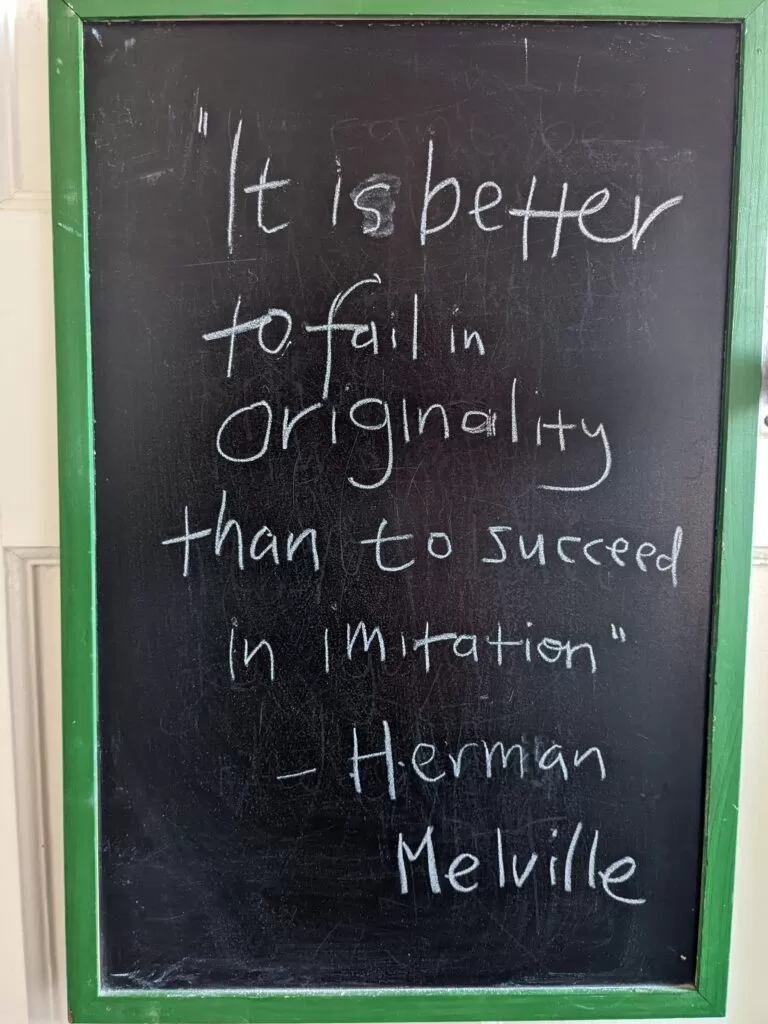 "It is better
to fail in
originality
than to succeed
in imitation"
- Herman
Melville